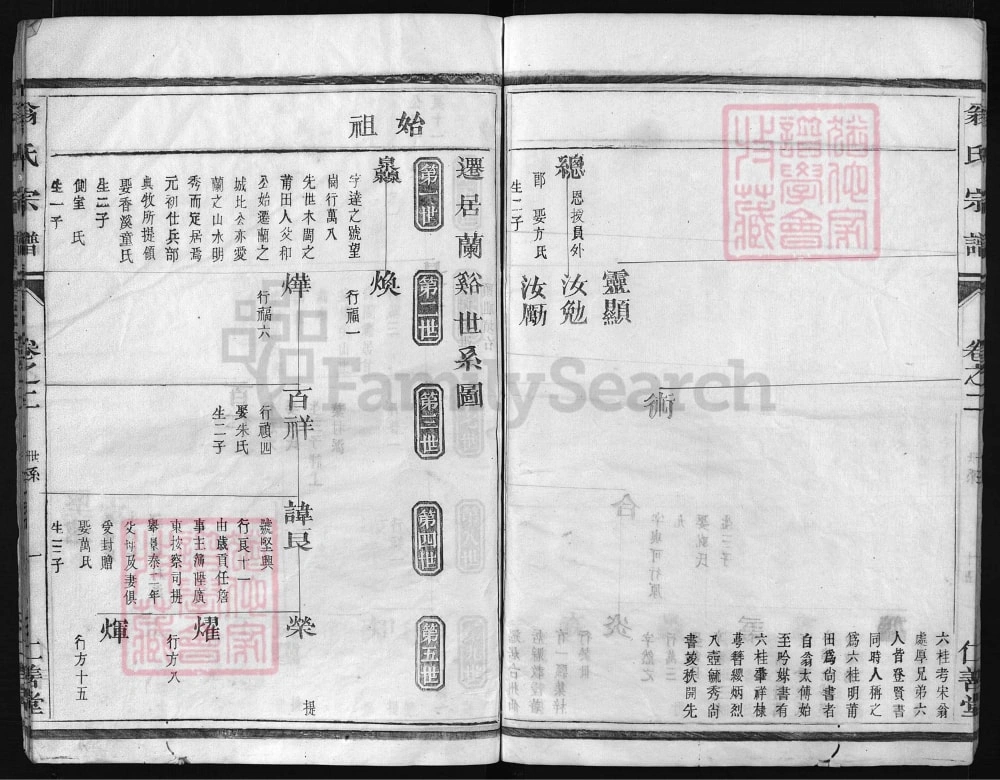 翁氏宗譜
卷之二
仁善堂
總
恩授員外
郎 娶方氏
生二子
靈顯
汝勉
汝勵
術
六桂考宋翁
處厚兄弟六
人昔登賢書
同時人稱之
為六桂明莆
田為尚書者
自翁太傅始
至吟媒書有
六桂肇祥棣
萼簪纓炳烈
八壺毓秀尚
書菱秩開先
遷居蘭谿世系圖
始祖
第一世
第二世
第三世
第四世
第五世
字達之號望
崗行萬八
先世木閩之
莆田人父和
公始遷蘭之
城北公亦愛
蘭之山水明
秀而定居焉
元初仕兵部
典牧所提領
娶香溪童氏
生二子
側室 氏
生一子
煥
行福一
燁
行福六
百祥
行禎四
娶朱氏
生二子
諱良
號堅輿
行良十一
由歲貢任詹
事主簿陞廣
東按察司提
舉景泰二年
父母及妻俱
受封贈
娶萬氏
生三子
榮
提
燿
行方八
煇
行方十五
翁氏宗譜
卷之二
世系
一
仁善堂
FamilySearch